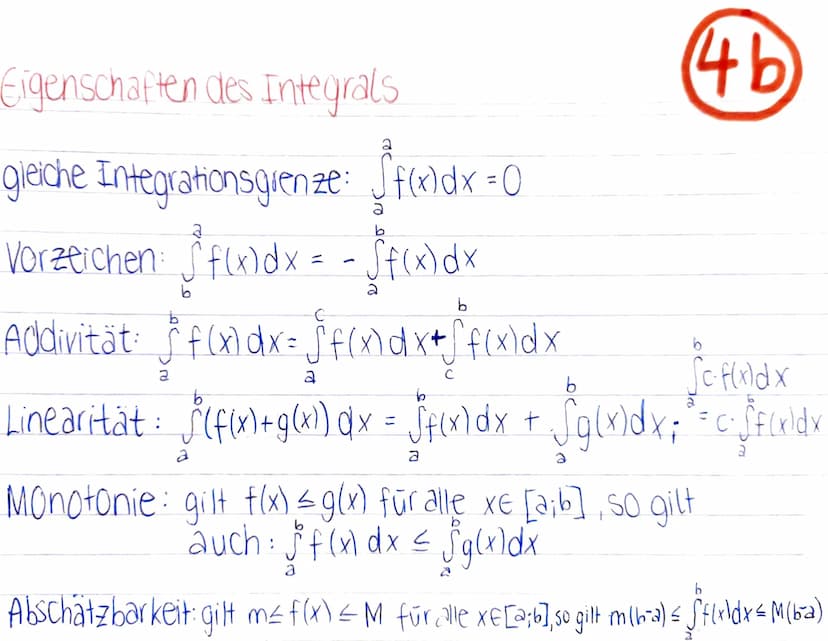 4b
Eigenschaften des Integrals
gleiche Integrationsgrenze: ∫ₐᵃ f(x)dx = 0
Vorzeichen: ∫_b^a f(x)dx = - ∫_a^b f(x)dx
Addivität: ∫_a^b f(x)dx = ∫_a^c f(x)dx + ∫_c^b f(x)dx
Linearität: ∫_a^b (f(x)+g(x)) dx = ∫_a^b f(x)dx + ∫_a^b g(x)dx; ∫_a^b c·f(x)dx
= c·∫_a^b f(x)dx
Monotonie: gilt f(x) ≤ g(x) für alle x∈[a;b], so gilt
auch: ∫_a^b f(x) dx ≤ ∫_a^b g(x)dx
Abschätzbarkeit: gilt m ≤ f(x) ≤ M für alle x∈[a;b], so gilt m(b-a) ≤ ∫_a^b f(x)dx ≤ M(b-a)